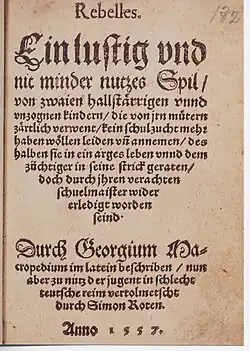 Rebelles.
172
Ein lustig vnd
nit minder nutzes Spil/
von zwaien hallstärrigen vnnd
vnzognen kindern/ die von jrn mütern
zärtlich verwent/ kein schulzucht mehr
haben wöllen leiden vñ annemen/ des
halben sie in ein arges leben vnnd dem
züchtiger in seine strick geraten/
doch durch jhren verachten
schuelmaister wider
erledigt worden
seind.
Durch Georgium Ma-
cropedium im latein beschriben/ nun
aber zu nutz der jugent in schlecht
teutsche reim vertolmetscht
durch Simon Roten.
Anno 1557.